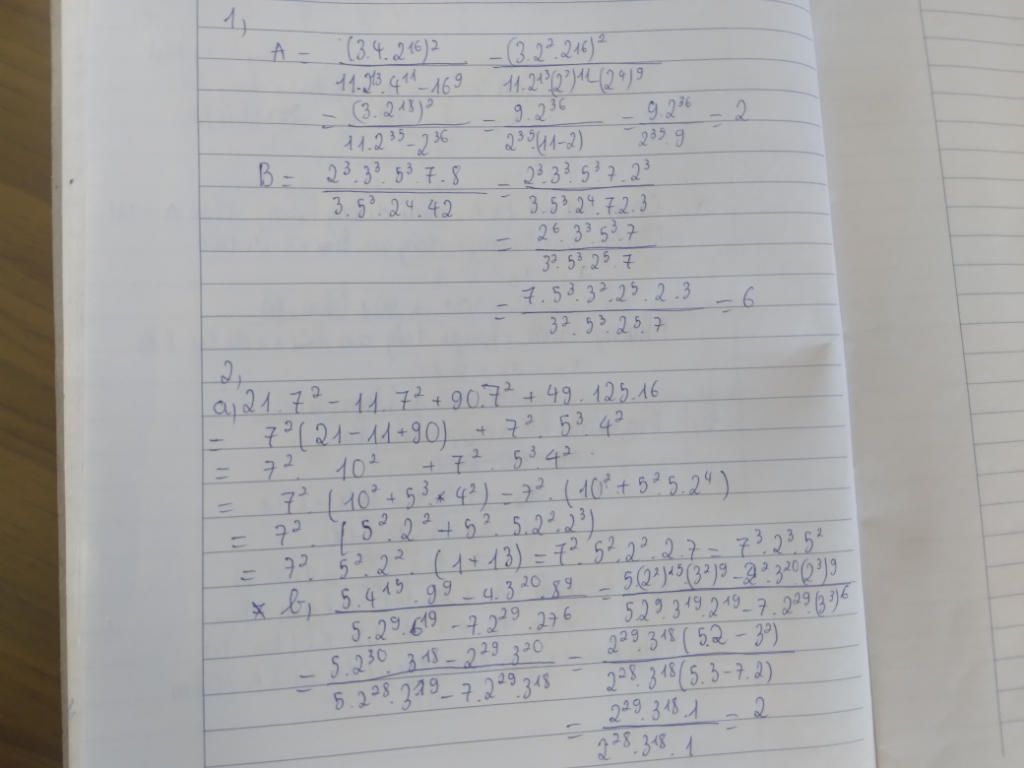 1,
A = (3.4.2^16)^2 / 11.2^13.4^11 - 16^9 = (3.2^2.2^16)^2 / 11.2^13(2^2)^11-(2^4)^9
= (3.2^18)^2 / 11.2^35-2^36 = 9.2^36 / 2^35(11-2) = 9.2^36 / 2^35.9 = 2
B = 2^3.3^3.5^3.7.8 / 3.5^3.24.42 = 2^3.3^3.5^3.7.2^3 / 3.5^3.2^4.7.2.3
= 2^6.3^3.5^3.7 / 3^2.5^3.2^5.7
= 7.5^3.3^2.2^5.2.3 / 3^2.5^3.2^5.7 = 6
2,
a, 21.7^2 - 11.7^2 + 90.7^2 + 49.125.16
= 7^2(21-11+90) + 7^2.5^3.4^2
= 7^2.10^2 + 7^2.5^3.4^2.
= 7^2.(10^2+5^3.4^2) = 7^2.(10^2+5^2.5.2^4)
= 7^2.(5^2.2^2+5^2.5.2^2.2^3)
= 7^2.5^2.2^2.(1+13) = 7^2.5^2.2^2.2.7 = 7^3.2^3.5^2
* b, 5.4^15.9^9-4.3^20.8^9 / 5.2^9.6^19-7.2^29.27^6 = 5(2^2)^15(3^2)^9-2^2.3^20(2^3)^9 / 5.2^9.3^19.2^19-7.2^29(3^3)^6
= 5.2^30.3^18-2^29.3^20 / 5.2^28.3^19-7.2^29.3^18 = 2^29.3^18(5.2-3^2) / 2^28.3^18(5.3-7.2)
= 2^29.3^18.1 / 2^28.3^18.1 = 2